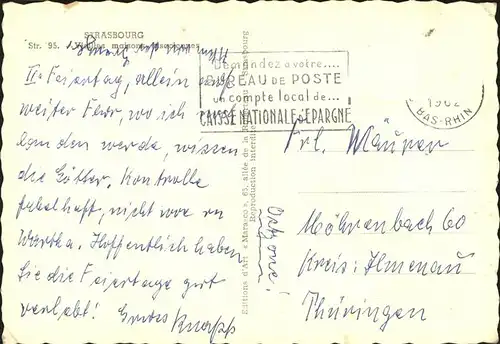 STRASBOURG
Str. 95.
II. Feiertag, allein auf
weiter Flur, wo ich
den werde, wissen
die Götter. Kontrolle
fabelhaft, nicht wie in
Wartha. Hoffentlich haben
Sie die Feiertage gut
verlebt! Knapp
Demandez à votre....
BUREAU DE POSTE
un compte local de...
CAISSE NATIONALE d'EPARGNE
1962
BAS-RHIN
Editions d'Art «Marasco», 65, allée de la Strasbourg
Reproduction interdite
Ostzone!
Frl. Mäurer
Möhrenbach 60
Kreis: Ilmenau
Thüringen